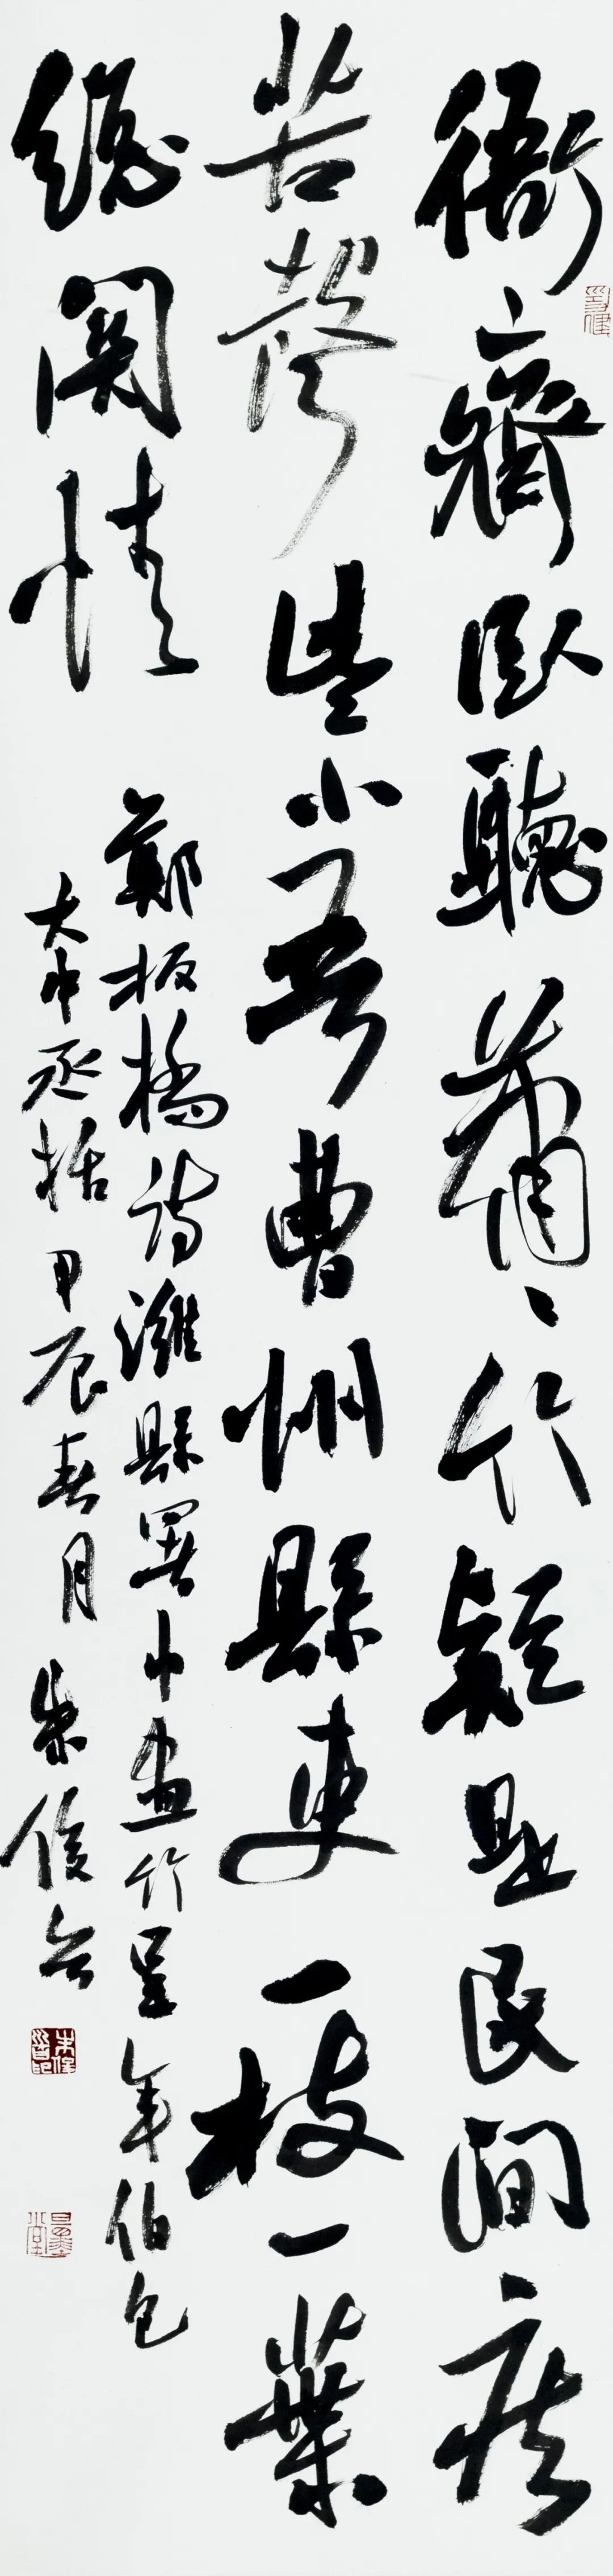 衙齋卧聽蕭〻竹疑是民間疾
苦聲些小吾曹州縣吏一枝一葉
總關情
鄭板橋詩濰縣署中畫竹呈年伯包
大中丞括甲辰春月朱俊